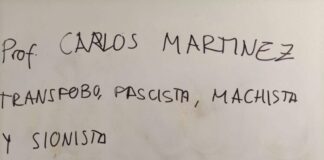 Prof. CARLOS MARTINEZ
TRANSFOBO, FASCISTA, MACHISTA
Y SIONISTA